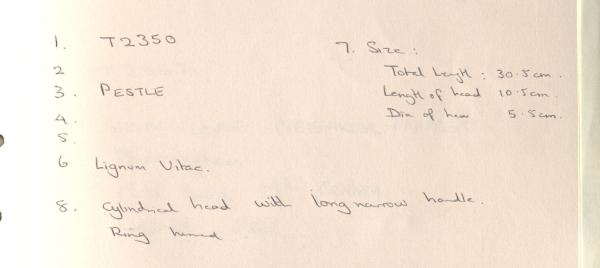 1. T2350
2
3. PESTLE
4.
5.
6 Lignum Vitae.
7. Size :
Total Length : 30.5cm.
Length of head 10.5cm.
Dia of head 5.5cm.
8. Cylindrical head with long narrow handle.
Ring turned